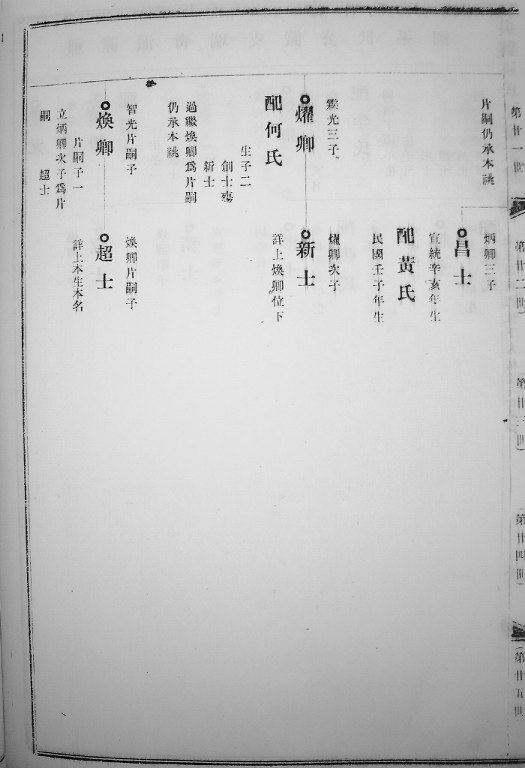 第廿一世
第廿二世
第廿三世
第廿四世
第廿五世
片嗣仍承本祧
炳卿三子
昌士
宣統辛亥年生
配黃氏
民國壬子年生
靈光三子
燿卿
配何氏
生子二
創士殤
新士
過繼煥卿為片嗣
仍承本祧
燿卿次子
新士
詳上煥卿位下
智光片嗣子
煥卿
片嗣子一
立炳卿次子為片
嗣 超士
煥卿片嗣子
超士
詳上本生本名